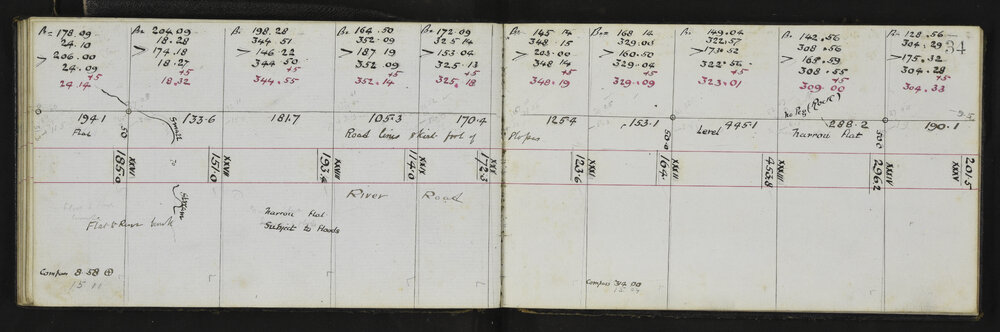 A= 178.09
24.10
> 206.00
24.09
+5
24.14
A= 204.09
18.28
> 174.18
18.27
+5
18.32
A. 198.28
344.51
> 146.22
344.50
+5
344.55
A= 164.50
352.09
> 187 19
352.09
+5
352.14
A= 172.09
325 14
> 153.04
325.13
+5
325.18
A= 145 14
348.15
> 203.00
348 14
+5
348.19
A= 168 14
329.05
> 160.50
329.04
+5
329.09
A. 149.04
322.57
> 173.52
322.56
+5
323.01
A. 142.56
308.56
> 165.59
308.55
+5
309.00
A. 128.56
304.29
> 175.32
304.28
+5
304.33
34
no Peg (Rock)
194.1
133.6
181.7
105.3
170.4
125.4
153.1
445.1
288.2
190.1
Flat
50
Small
Road lines skirt foot of
Slopes
50.0
Level
Narrow flat
50.0
XXVI
185.0
XXVII
151.0
XXVIII
193.4
XXIX
114.0
XXX
172.3
XXXI
123.6
XXXII
164.
XXXIII
453.8
XXXIV
296.2
XXXV
201.5
Stream
River Road
Flat & River bank
Narrow Flat
Subject to floods
Compass 8.58
15 11
Compass 314.00